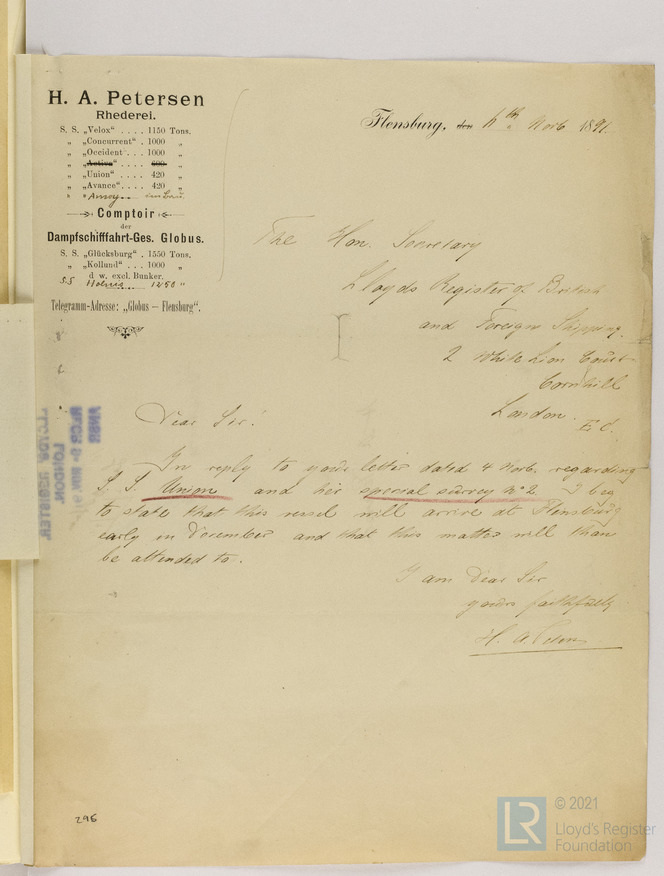 H. A. Petersen
Rhederei.
S. S. „Velox“ . . . . 1150 Tons.
„ „Concurrent“ . 1000 „
„ „Occident“ . . . 1000 „
„ „Activa“ . . . . 600 „
„ „Union“ . . . . 420 „
„ „Avance“ . . . . 420 „
„ „Amoy
Comptoir
der
Dampfschifffahrt-Ges. Globus.
S. S. „Glücksburg“ . 1550 Tons.
„ „Kollund“ . . . 1000 „
d w. excl. Bunker.
SS 1250 "
Telegramm-Adresse: „Globus — Flensburg“.
Flensburg, den th Novb 1891.
The Hon. Secretary
Lloyds Register of British
and Foreign Shipping.
2 White Lion Court
Cornhill
London.
E C.
Dear Sir!
In reply to yours letter dated 4 Novb. regarding
S. S. Union and her special survey No 2 I beg
to state that this vessel will arrive at Flensburg
early in December and that this matter will than
be attended to.
I am Dear Sir
yours faithfully
H. A. Petersen
LLOYDS REGISTER
LONDON.
296
LR
© 2021
Lloyd's Register
Foundation